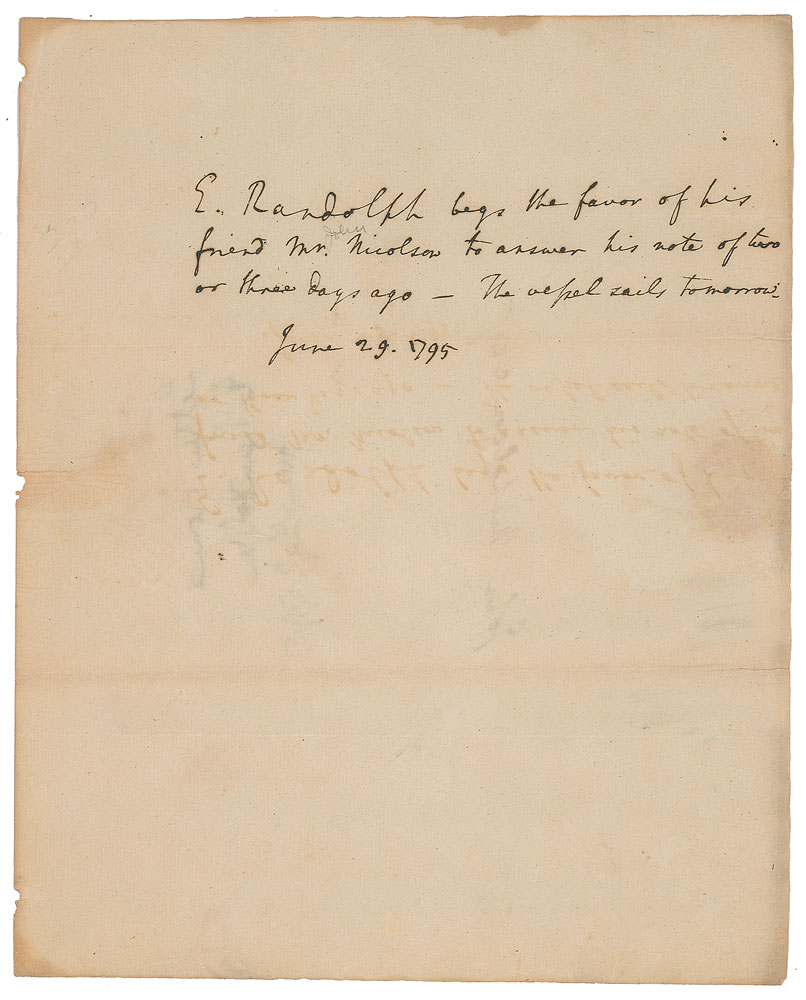 E. Randolph begs the favor of his
John
friend Mr. Nicolson to answer his note of two
or three days ago — The veſsel sails tomorrow.
June 29. 1795